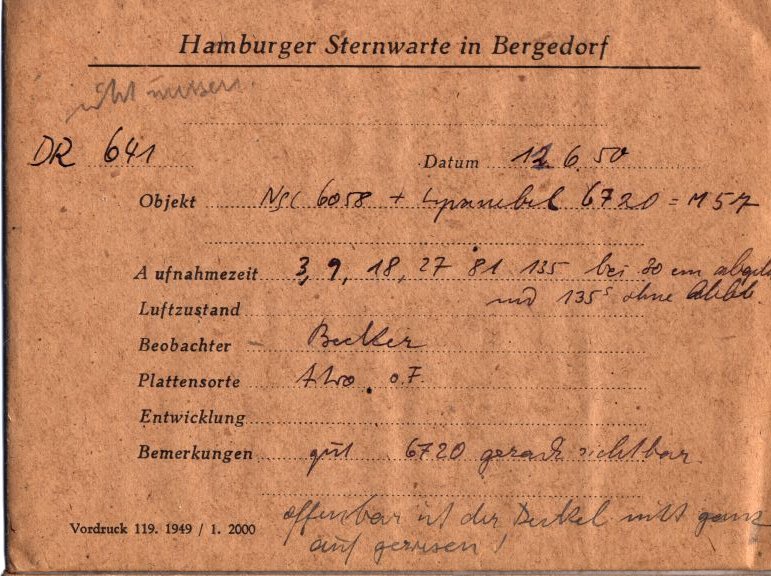 Hamburger Sternwarte in Bergedorf
nicht messen
DR 641
Datum 12.6.50
Objekt NGC 6058 + Lyranebel 6720 = M 57
Aufnahmezeit 3, 9, 18, 27 81 135 bei 30 cm abgebl
und 135s ohne Abbl.
Luftzustand
Beobachter Becker
Plattensorte Astro o.F.
Entwicklung
Bemerkungen gut 6720 gerade sichtbar
offenbar ist der Deckel nicht ganz
auf gewesen!
Vordruck 119. 1949 / 1. 2000